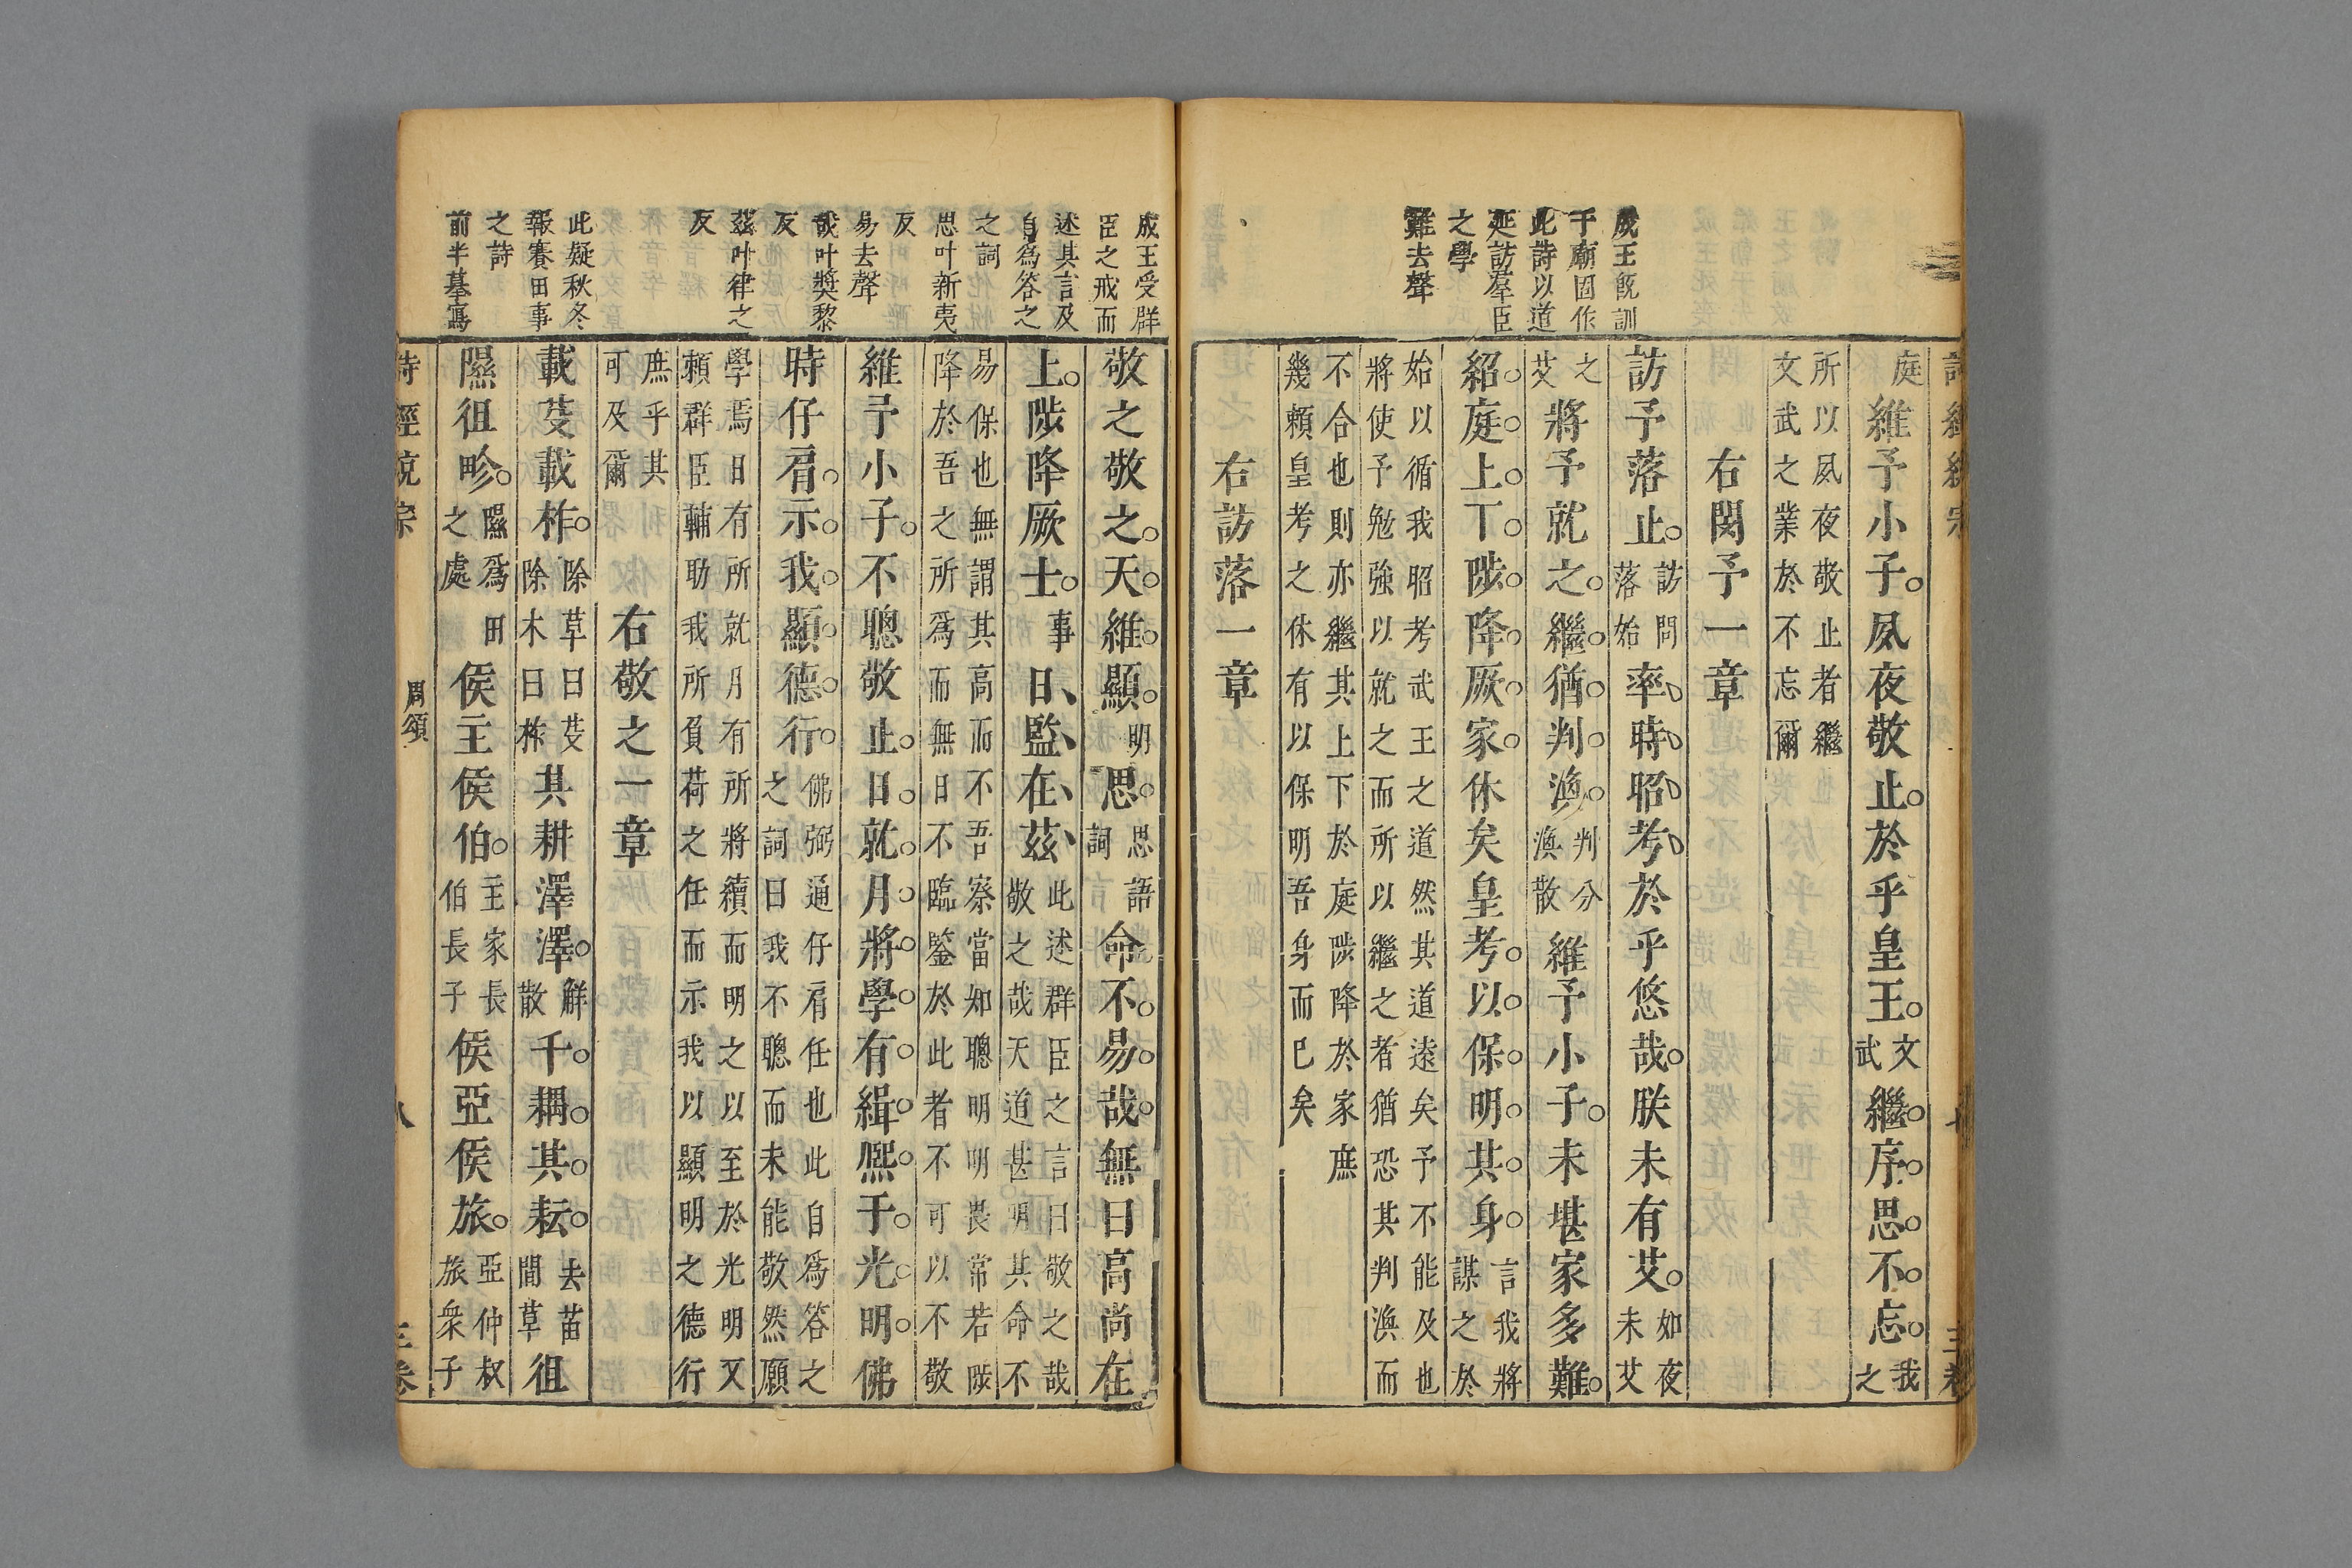 詩經統宗
七
三卷
成王既訓
于廟因作
此詩以道
延訪羣臣
之學
難去聲
庭維予小子。夙夜敬止。於乎皇王。文武繼。序。思。不。忘。我之
所以夙夜敬止者繼
文武之業於不忘爾
右閔予一章
訪予落止。訪問落始率、時、昭、考、於乎悠哉。朕未有艾。如夜未艾
之艾將予就之。繼。猶。判。渙。判分渙散維予小子。未堪家多難。
紹。庭。上。丅。陟。降。厥。家。休矣皇考。以。保。明。其。身。言我將謀之於
始以循我昭考武王之道然其道遠矣予不能及也
將使予勉強以就之而所以繼之者猶恐其判渙而
不合也則亦繼其上下於庭陟降於家庶
幾賴皇考之休有以保明吾身而巳矣
右訪落一章
成王受群
臣之戒而
述其言及
自爲答之
之詞
思叶新夷
反
易去聲
哉叶獎黎
反
茲叶律之
反
此疑秋冬
報賽田事
之詩
前半摹寫
敬之敬之。天。維。顯。明思。思語詞命不。易。哉。無曰高尚在
上。陟降厥士。事日、監、在、茲、此述群臣之言曰敬之哉
敬之哉天道甚明其命不
易保也無謂其高而不吾察當知聰明明畏常若陟
降於吾之所爲而無日不臨鑒於此者不可以不敬
維予小子。不聰敬止。日。就。月。將。學。有。緝。熙。于。光。明。佛
時仔肩。示。我。顯。德。行。佛弼通仔肩任也此自爲答之
之詞曰我不聰而未能敬然願
學焉日有所就月有所將續而明之以至於光明又
賴群臣輔助我所負荷之任而示我以顯明之德行
庶乎其
可及爾
右敬之一章
載芟載柞。除草曰芟除木曰柞其耕澤澤。解散千。耦。其。耘。去苗間草徂
隰徂畛。隰爲田之處侯主侯伯。主家長伯長子侯亞侯旅。亞仲叔旅衆子
詩經統宗
周頌
八
三卷